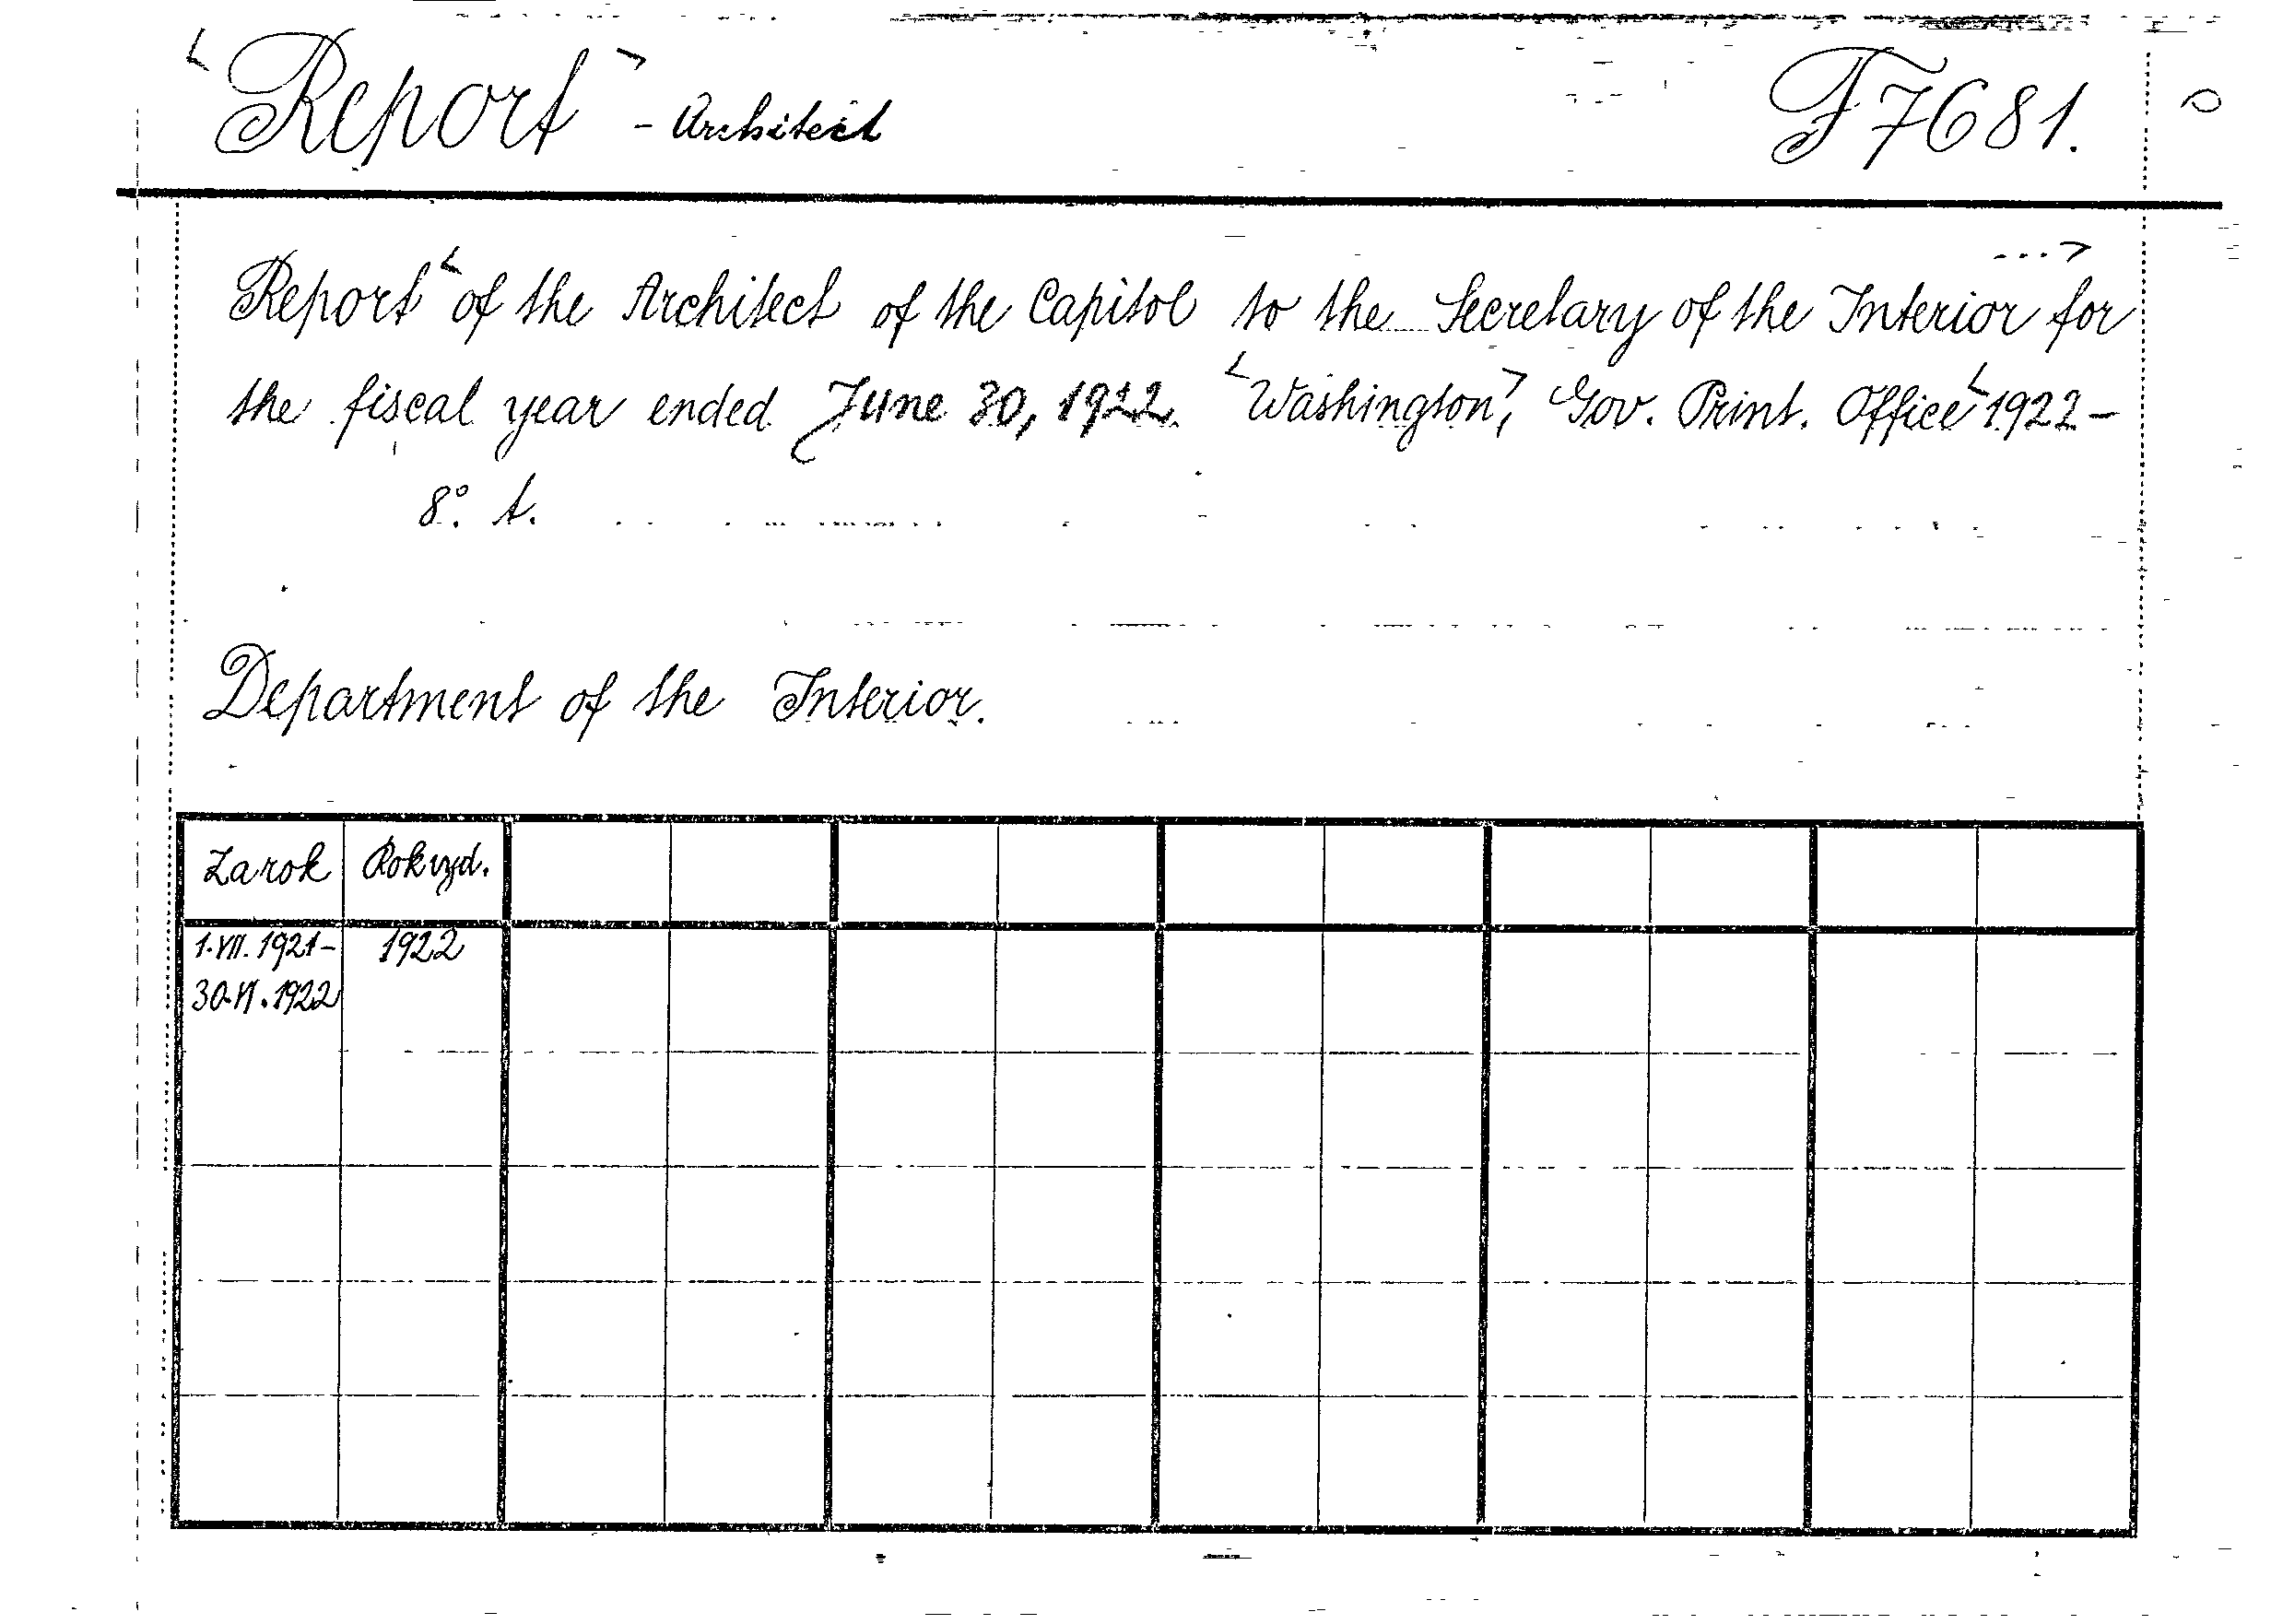 <Report> - Architect F 7681.
Report < of the Architect of the Capitol to the Secretary of the Interior ...> for
the fiscal year ended June 30, 1922. <Washington>, Gov. Print. Office < 1922 -
8°. t.
Department of the Interior.
Za rok Rok vyd.
1.VII.1921- 1922
30.VI.1922